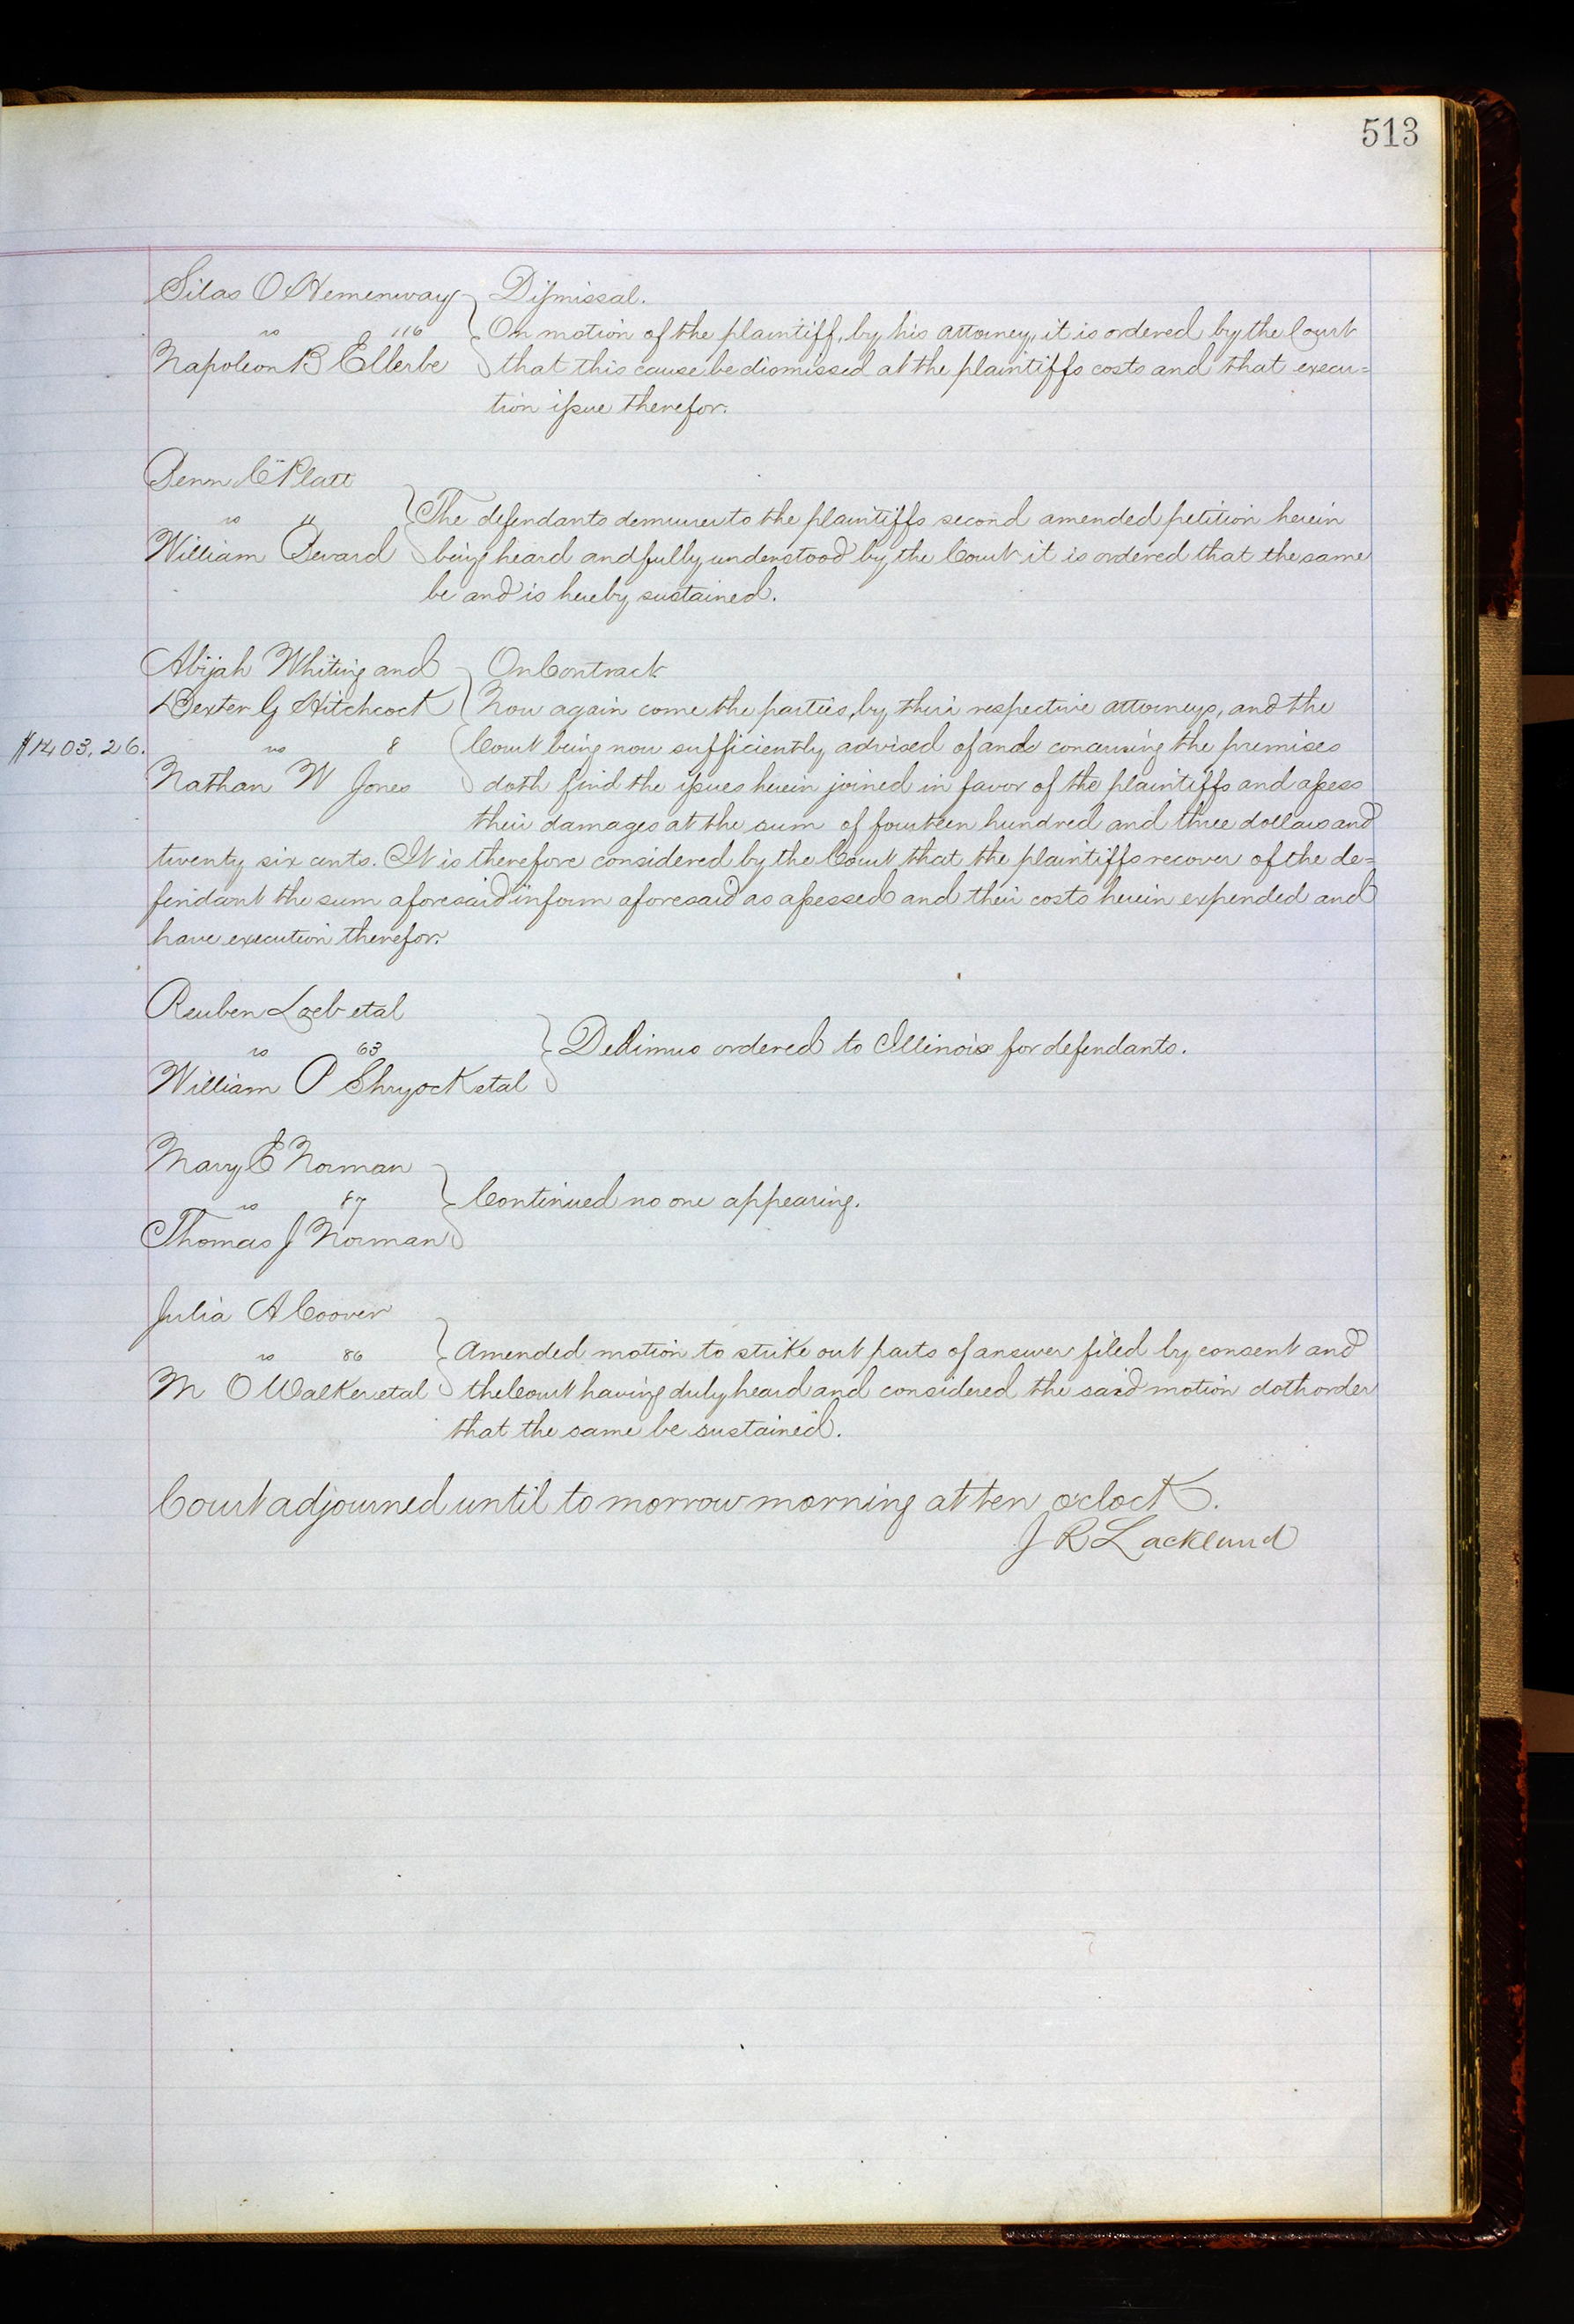 513
Silas O Hemenway Dismissal.
vs 116 On motion of the plaintiff, by his attorney, it is ordered by the Court
Napoleon B Ellerbe that this cause be dismissed at the plaintiffs costs and that execu=
tion issue therefor.
Penn C Platt
vs 11 The defendants demurrer to the plaintiffs second amended petition herein
William Sevard being heard and fully understood by the Court it is ordered that the same
be and is hereby sustained.
Abijah Whiting and On Contract
Dexter G Hitchcock Now again come the parties, by their respective attorneys, and the
$1403,26. vs 8 Court being now sufficiently advised of and concerning the premises
Nathan W Jones doth find the issues herein joined in favor of the plaintiffs and assess
their damages at the sum of fourteen hundred and three dollars and
twenty six cents. It is therefore considered by the Court that the plaintiffs recover of the de=
fendant the sum aforesaid in form aforesaid as assessed and their costs herein expended and
have execution therefor.
Reuben Loeb etal
vs 63 Dedimus ordered to Illinois for defendants.
William P Shryock etal
Mary E Norman
vs 87 Continued no one appearing.
Thomas J Norman
Julia A Coover
vs 86 Amended motion to strike out parts of answer filed by consent and
M O Walker etal the Court having duly heard and considered the said motion doth order
that the same be sustained.
Court adjourned until to morrow morning at ten o'clock.
J R Lackland